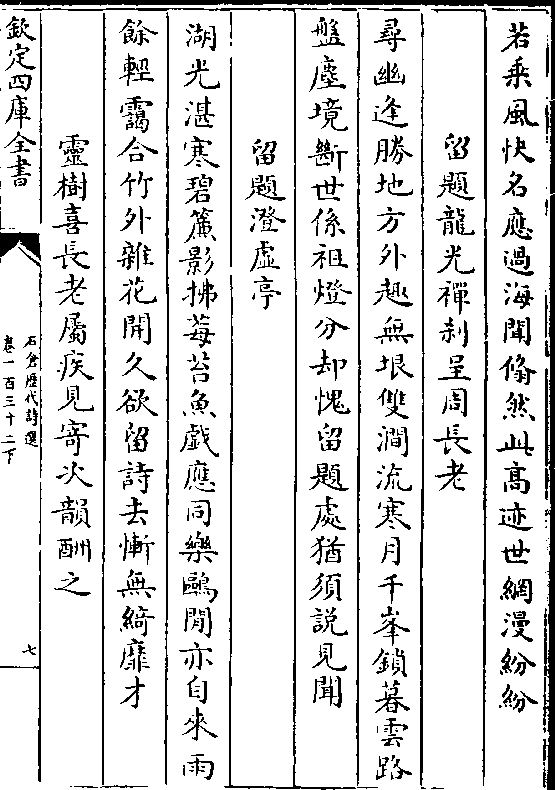 若乘風快名應過海聞翛然此髙迹世網漫紛紛
留題龍光禪刹呈周長老
尋幽逢勝地方外趣無垠雙澗流寒月千峯鎖暮雲路
盤塵境斷世係祖燈分却愧留題處猶須説見聞
留題澄虛亭
湖光湛寒碧簾影拂莓苔魚戯應同樂鷗閒亦自來雨
餘輕靄合竹外雜花開久欲留詩去慚無綺靡才
靈樹喜長老屬疾見寄次韻酬之
欽定四庫全書
石倉歴代詩選
卷一百三十二下
七